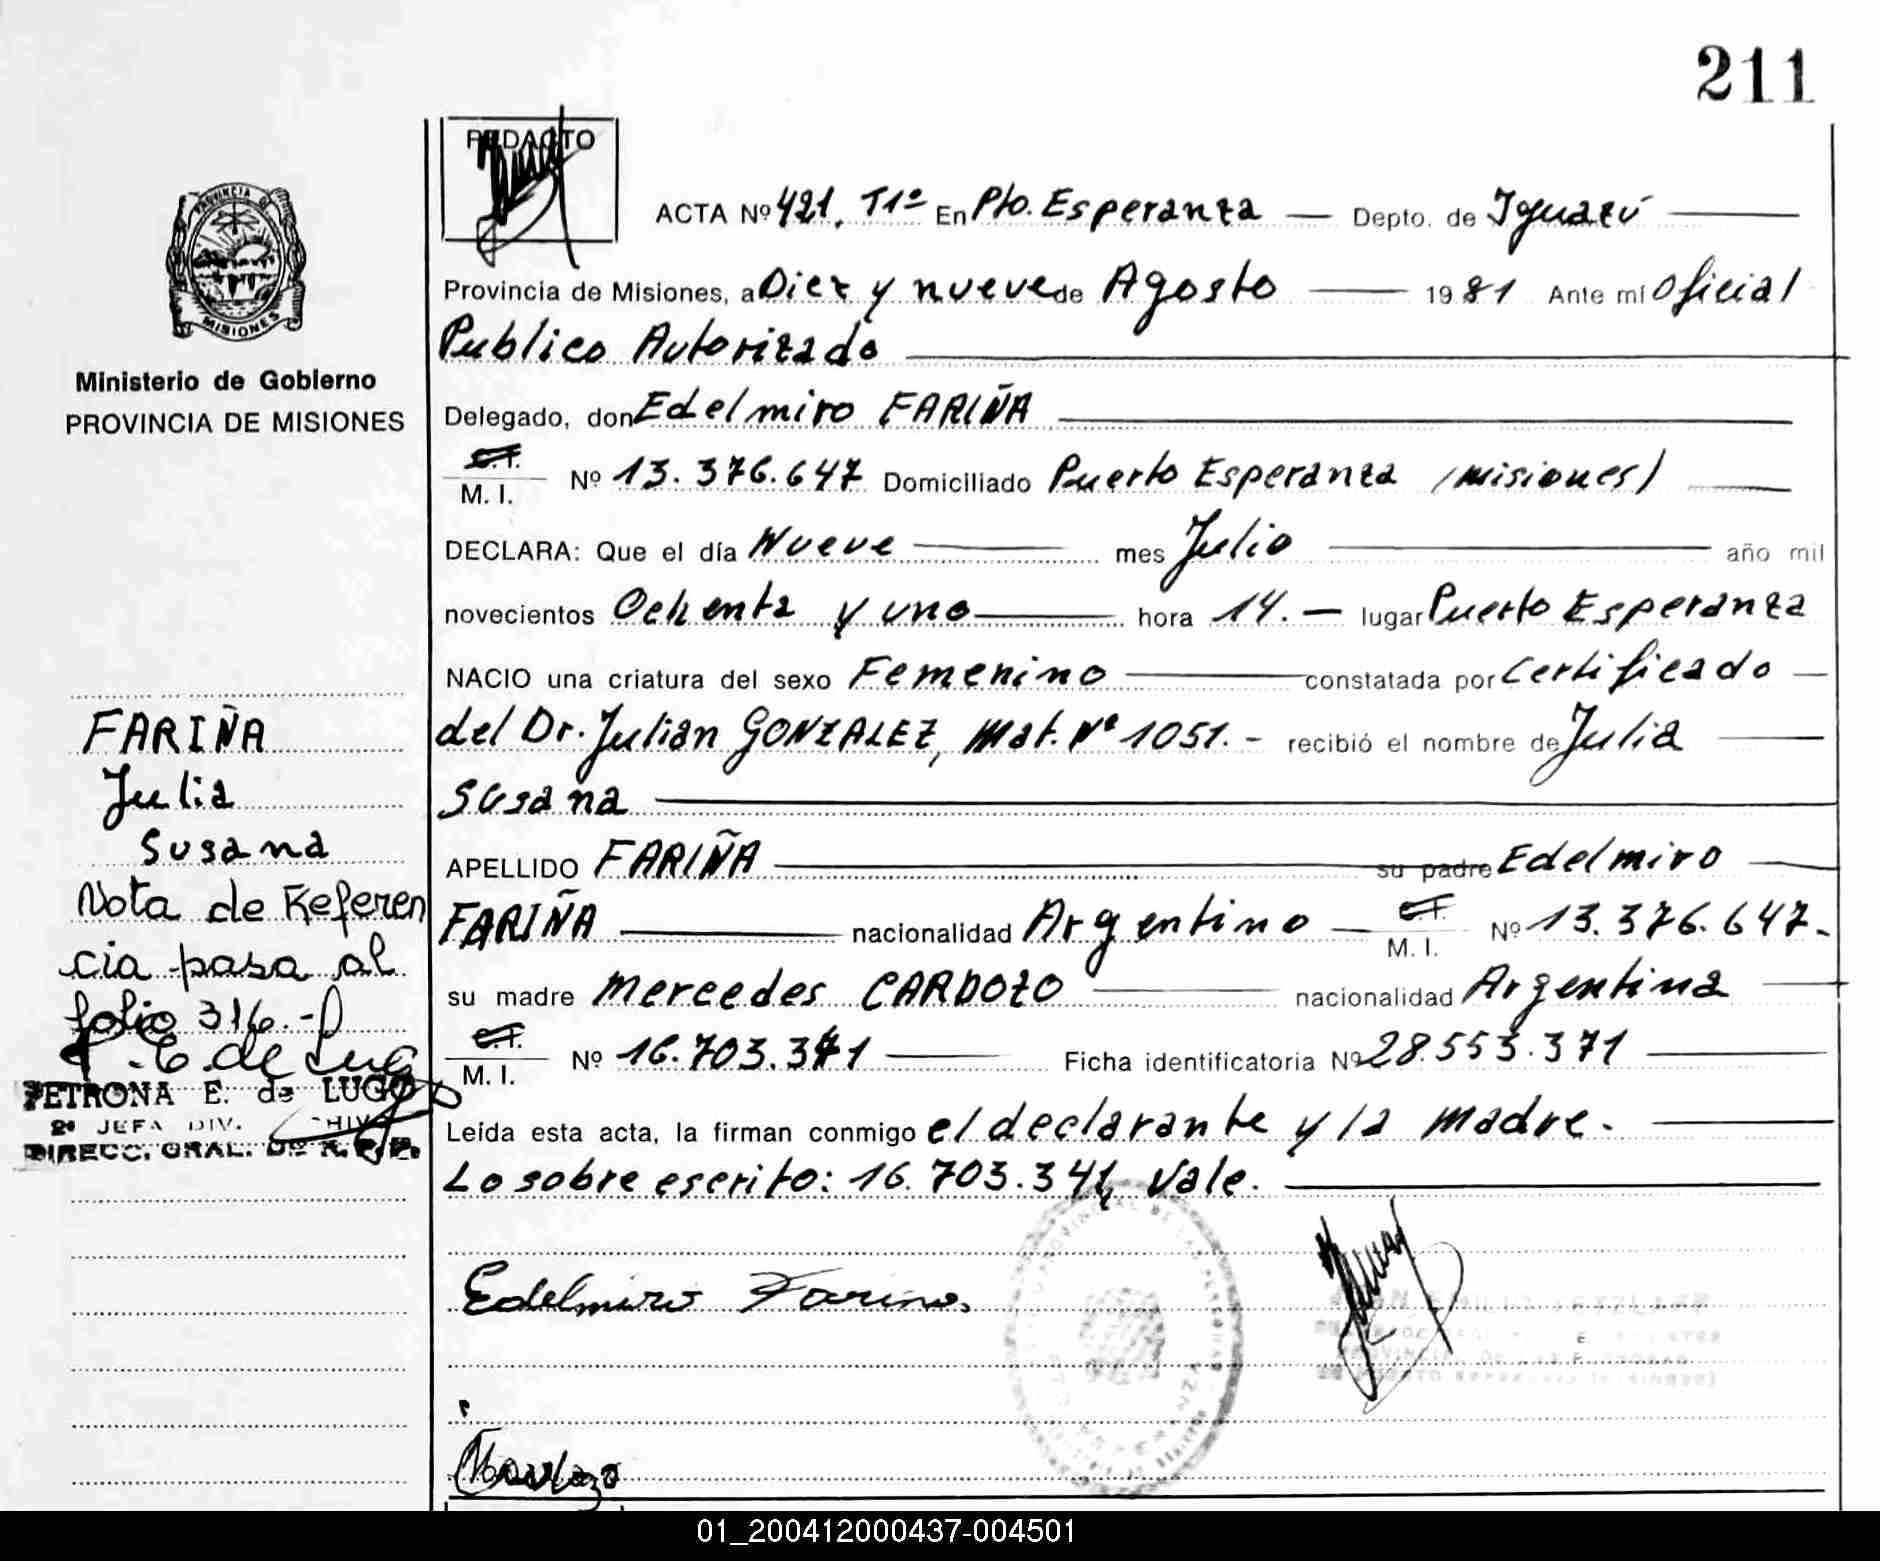 211
REDACTO
ACTA Nº 421. T1º En Pto. Esperanza — Depto. de Iguazú
Provincia de Misiones, a Diez y nueve de Agosto — 1981 Ante mí Oficial
Publico Autorizado
Delegado, don Edelmiro FARIÑA
C.I.
M. I. Nº 13.376.647 Domiciliado Puerto Esperanza (Misiones)
DECLARA: Que el día Nueve — mes Julio — año mil
novecientos Ochenta y uno — hora 14. — lugar Puerto Esperanza
NACIO una criatura del sexo Femenino — constatada por Certificado —
del Dr. Julian GONZALEZ, Mat. Nº 1051. - recibió el nombre de Julia —
Susana
APELLIDO FARIÑA — su padre Edelmiro —
FARIÑA — nacionalidad Argentino — C.I. M. I. Nº 13.376.647.-
su madre Mercedes CARDOZO — nacionalidad Argentina —
C.I.
M. I. Nº 16.703.341 — Ficha identificatoria Nº 28.553.371 —
Leída esta acta, la firman conmigo el declarante y la madre. —
Lo sobre escrito: 16.703.341, Vale. —
Edelmiro Farina.
PROVINCIA DE
MISIONES
Ministerio de Gobierno
PROVINCIA DE MISIONES
FARIÑA
Julia
Susana
Nota de Referen
cia pasa al
folio 316.-
P. E. de Lugo
PETRONA E. de LUGO
2º JEFA DIV.
DIRECC. GRAL. DE R. P.
01_200412000437-004501